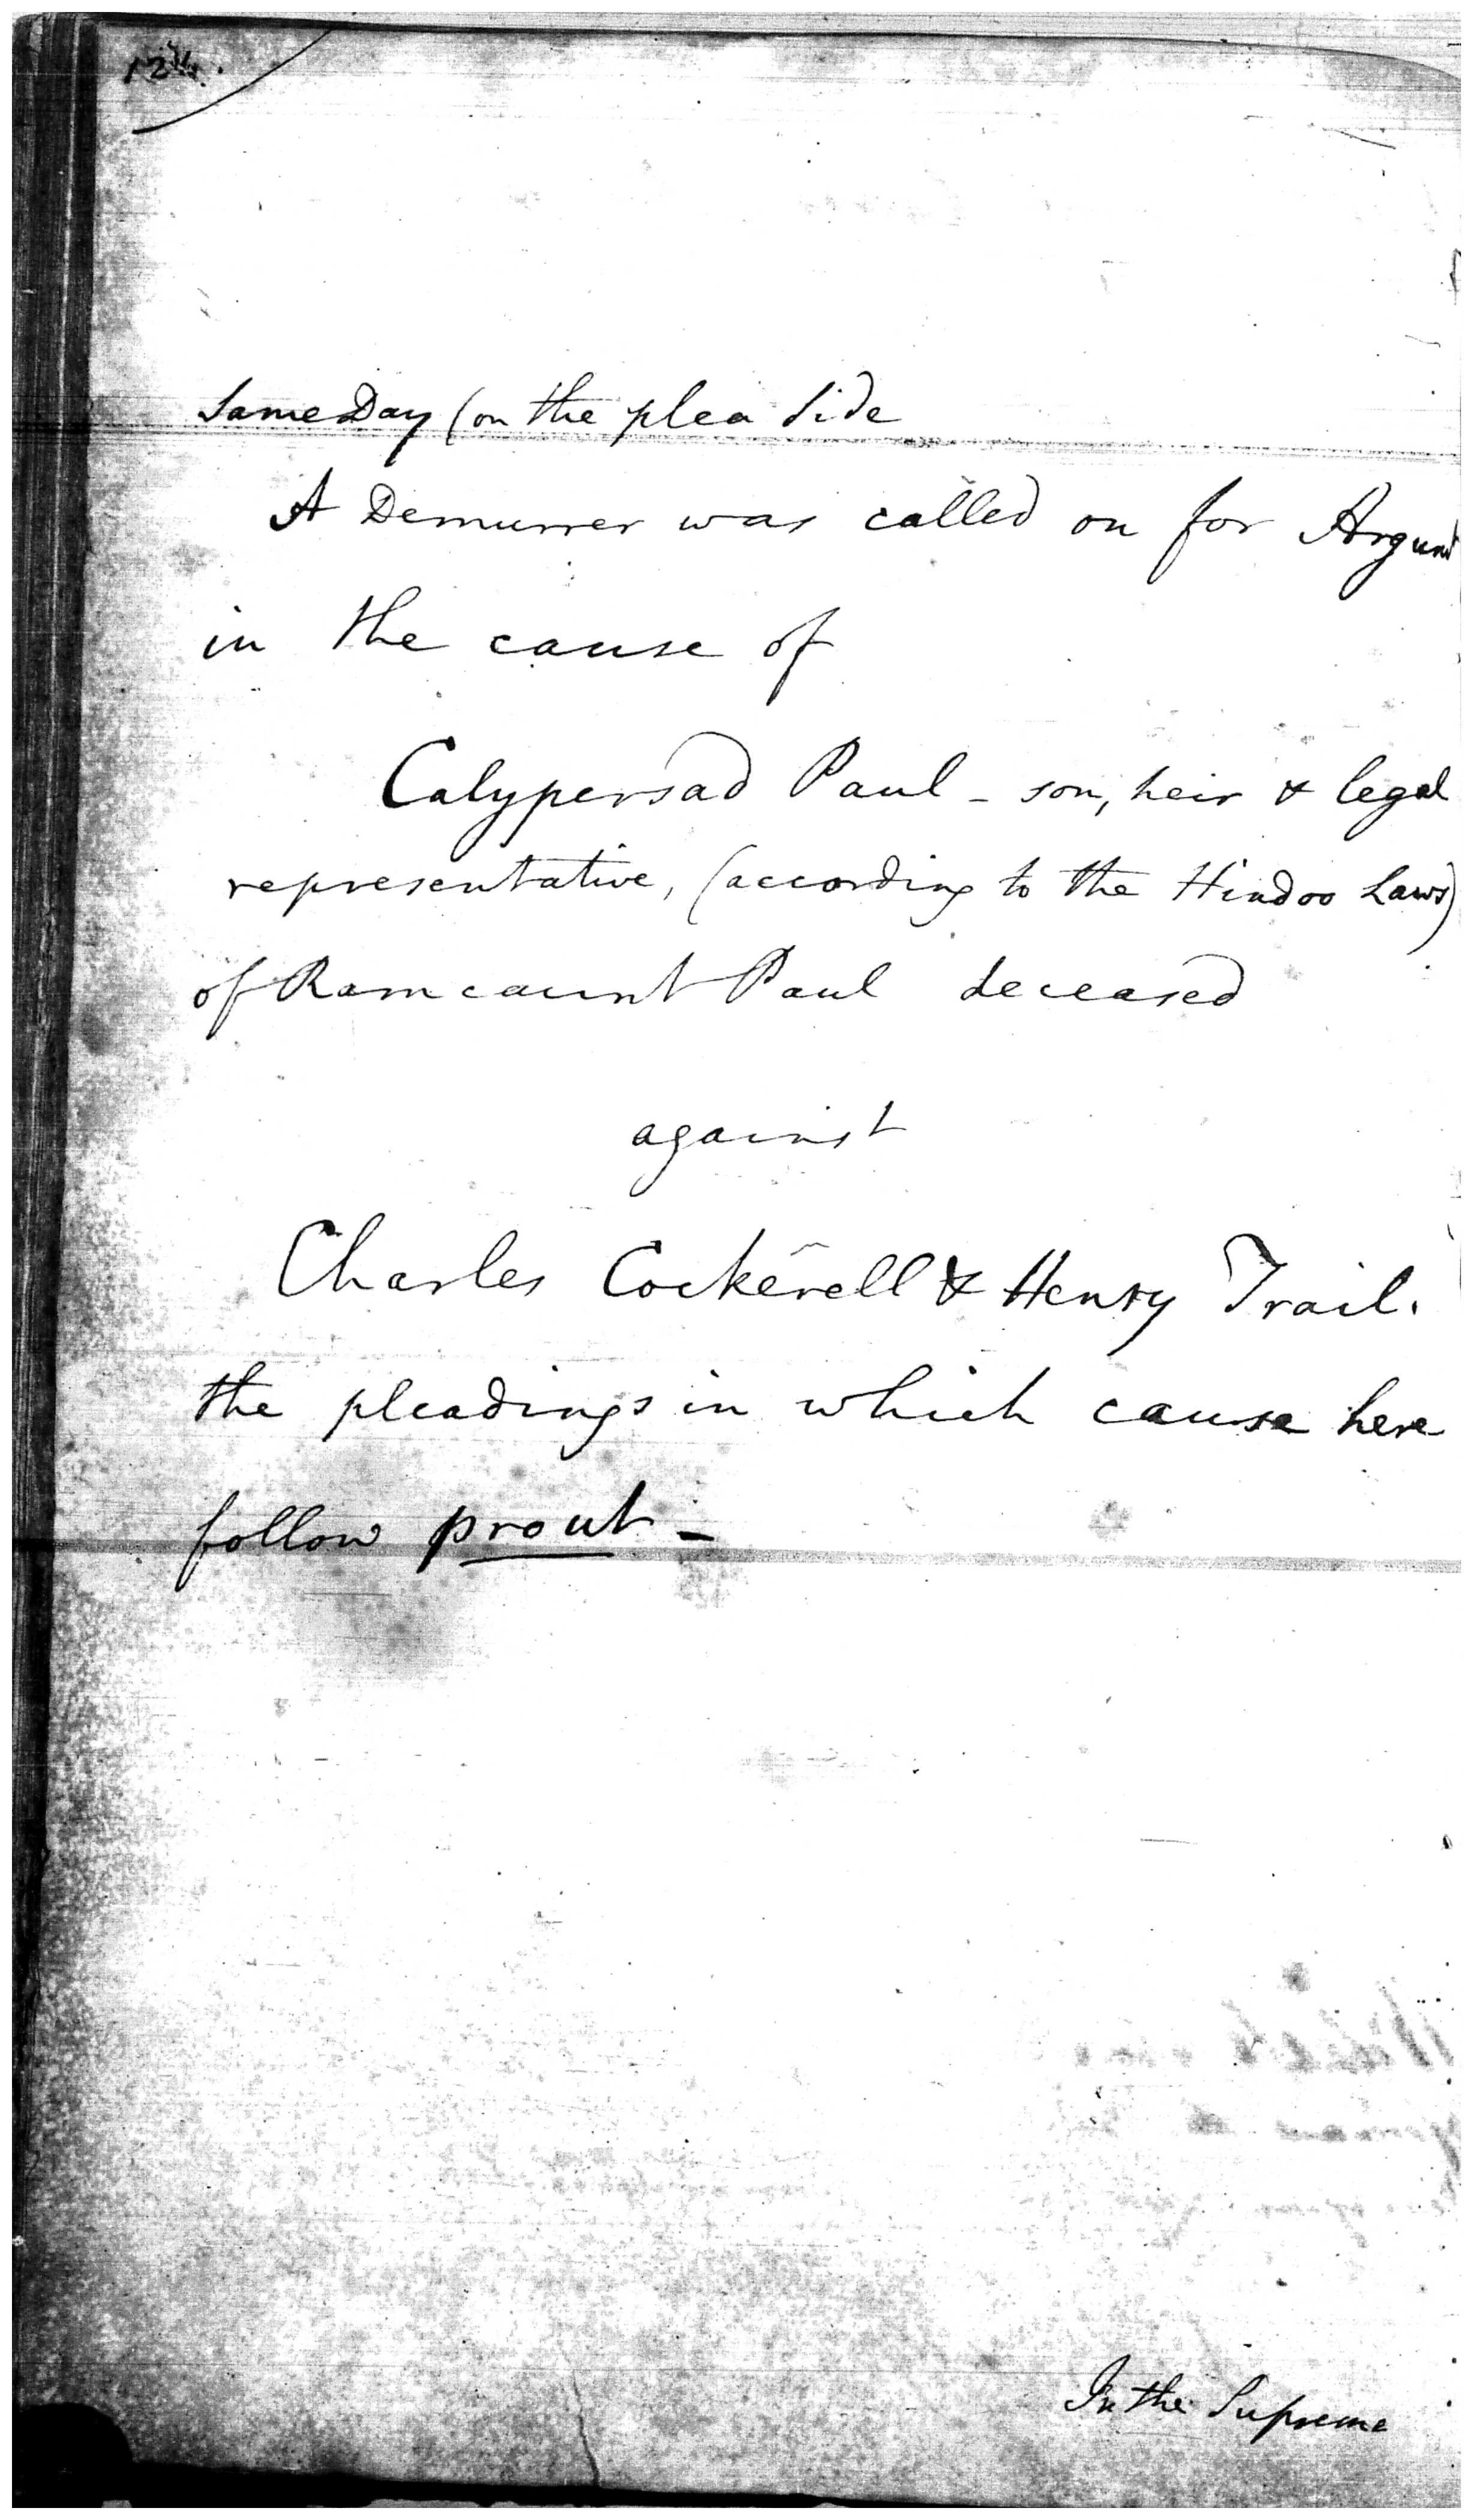 Same Day (on the plea side
A Demurrer was called on for Argumt
in the cause of
Calypersad Paul - son, heir & legal
representative, (according to the Hindoo Laws)
of Ramcaunt Paul deceased
against
Charles Cockerell & Henry Trail.
the pleadings in which cause here
follow prout -
In the Supreme